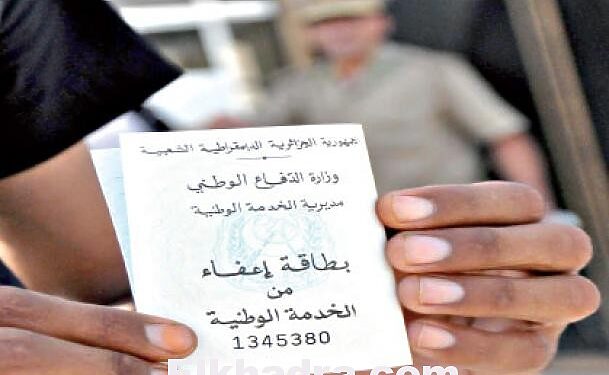 الجمهورية الجزائرية الديمقراطية الشعبية
وزارة الدفاع الوطني
مديرية الخدمة الوطنية
بطاقة إعفاء
من
الخدمة الوطنية
1345380
Elkhadra.com